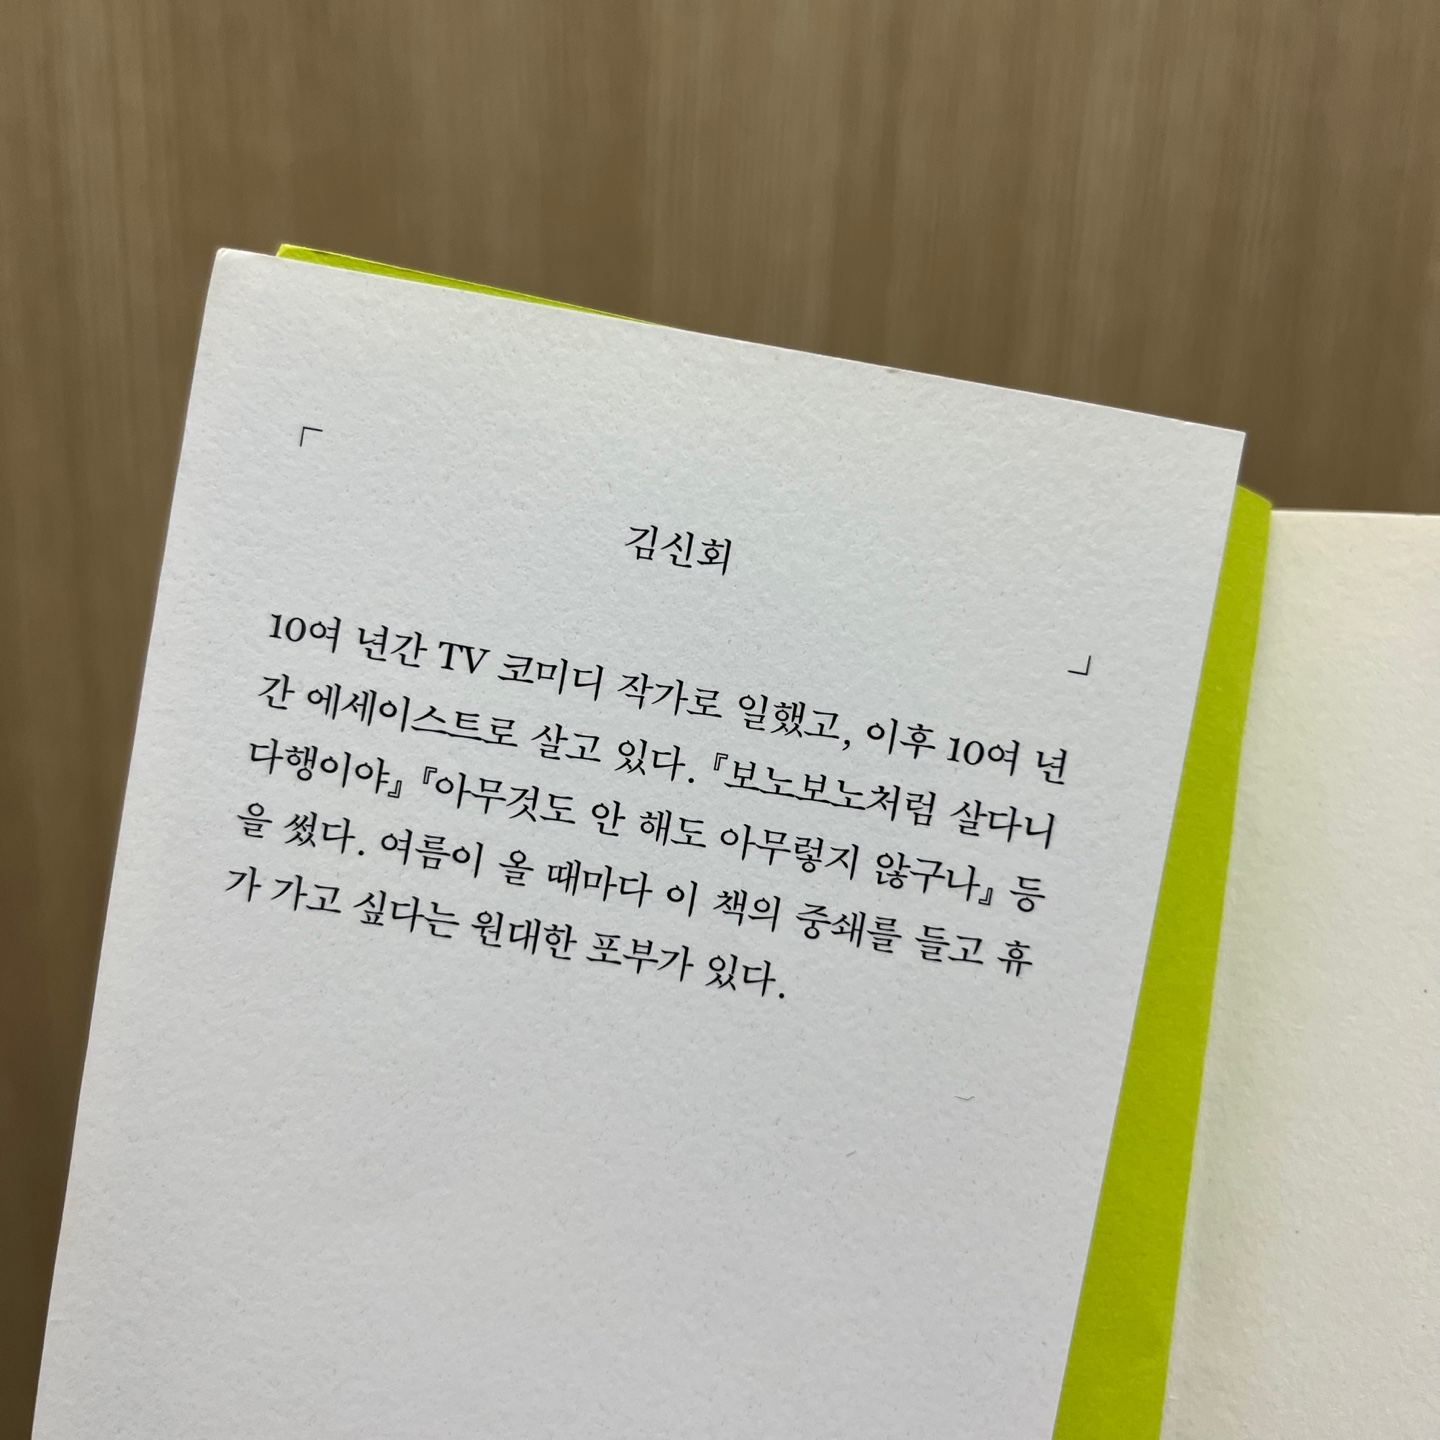 김신회
10여 년간 TV 코미디 작가로 일했고, 이후 10여 년
간 에세이스트로 살고 있다. 『보노보노처럼 살다니
다행이야』 『아무것도 안 해도 아무렇지 않구나』 등
을 썼다. 여름이 올 때마다 이 책의 중쇄를 들고 휴
가 가고 싶다는 원대한 포부가 있다.